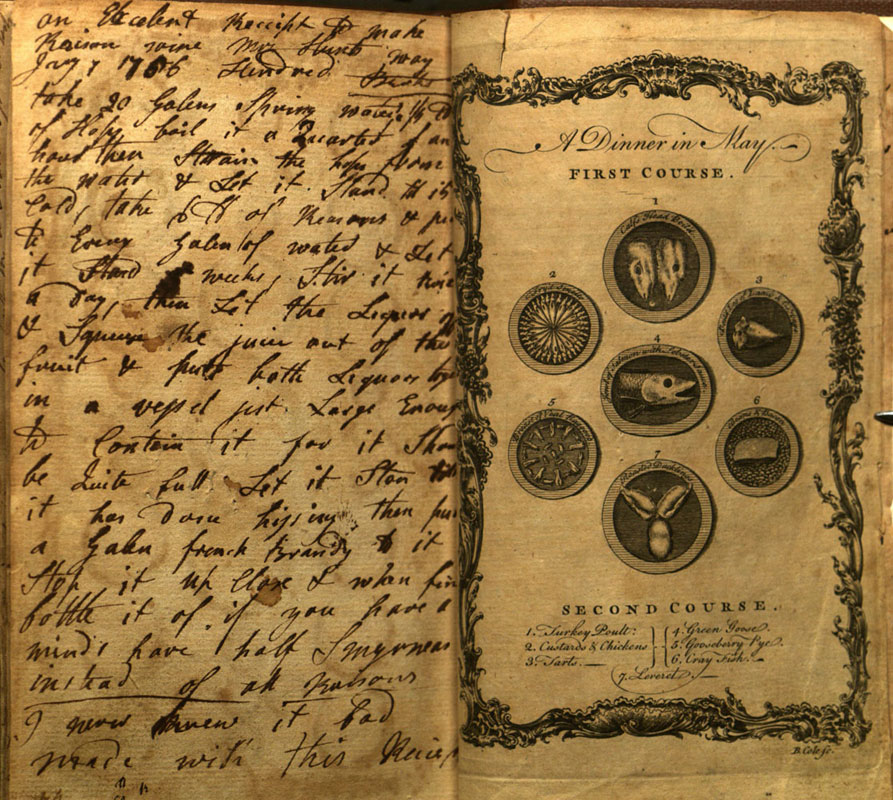 an Excelent Receipt to make
Raison wine Mrs Hunts way
Hundred
take 20 Galens Spring water
of Hops boil it a Quarter of an
hour then Strain the hops from
the water & Let it Stand til its
Cold, take of Reasons &
to Every Galen of water & Let
it Stand weeks, Stir it
a Day, then Let the Liquor
& Squeese the juice out of the
fruit & put both Liquors
in a vessel just Large Enoug
to Contain it for it Shou
be Quite full Let it Stan
it has done hissing then pu
a Galen french Brandy to it
Stop it up Close & when fin
bottle it of if you have a
mind have half Smyrneas
instead of all Raisons
I never knew it bad
made with this Receip
A Dinner in May.
FIRST COURSE.
1
2
3
4
5
6
7
SECOND COURSE.
1. Turkey Poult:
2. Custards & Chickens
3. Tarts.
4. Green Goose.
5. Gooseberry Pye.
6. Cray Fish.
7. Leveret.
B. Cole sc.